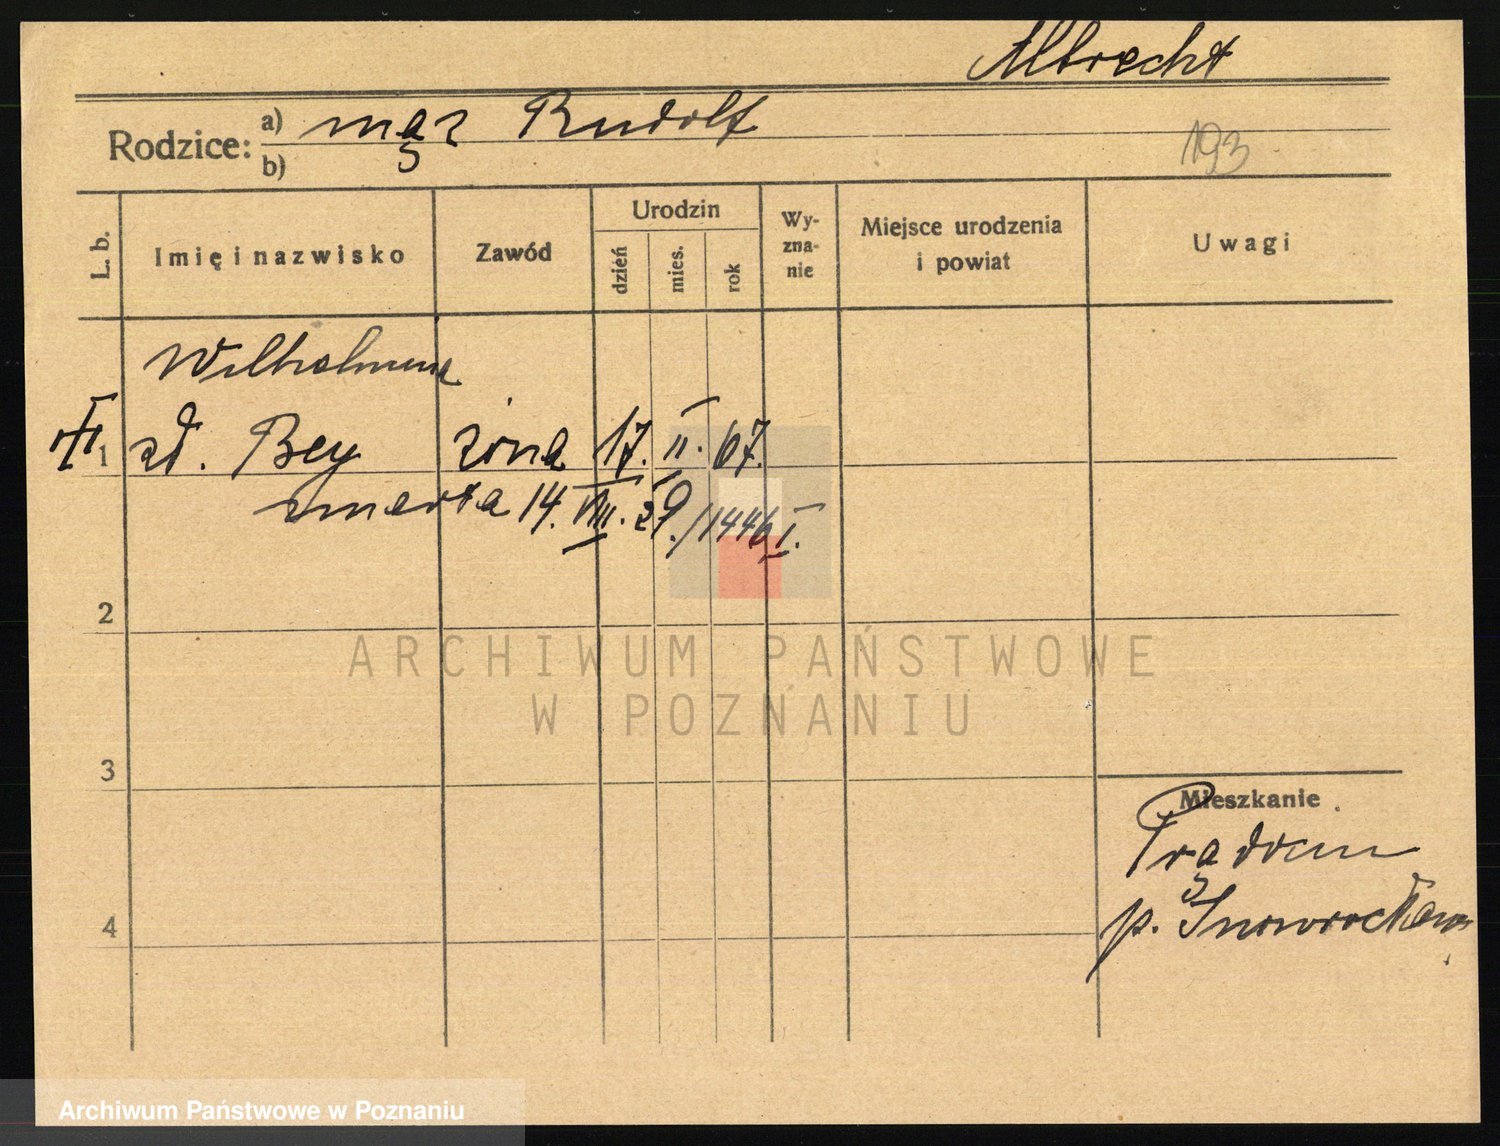 Albrecht
Rodzice: a) mąż Rudolf
b)
193
L. b. Imię i nazwisko Zawód Urodzin dzień mies. rok Wy-zna-nie Miejsce urodzenia i powiat Uwagi
Wilhelmine
1 zd. Bey żona 17. II. 67.
zmarła 14. VIII. 29. /1446 I.
2
ARCHIWUM PAŃSTWOWE
W POZNANIU
3
Mieszkanie
4
p. Inowrocław
Archiwum Państwowe w Poznaniu